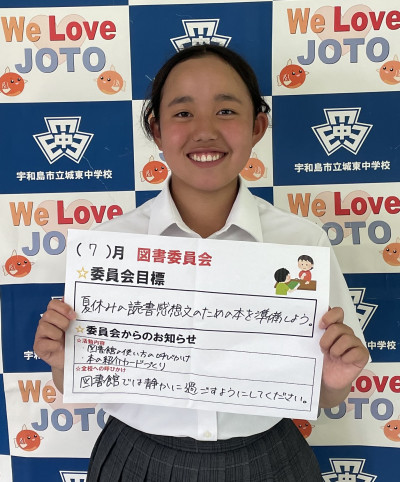 We Love
JOTO
We Love
JOTO
宇和島市立城東中学校
宇和島市立城東中学校
We Love
JOTO
We Love
JOTO
(7)月 図書委員会
☆委員会目標
夏休みの読書感想文のための本を準備しよう。
☆委員会からのお知らせ
☆活動内容
・図書館の使い方の呼びかけ
・本の紹介カードづくり
☆全校への呼びかけ
図書館では静かに過ごすようにしてください。